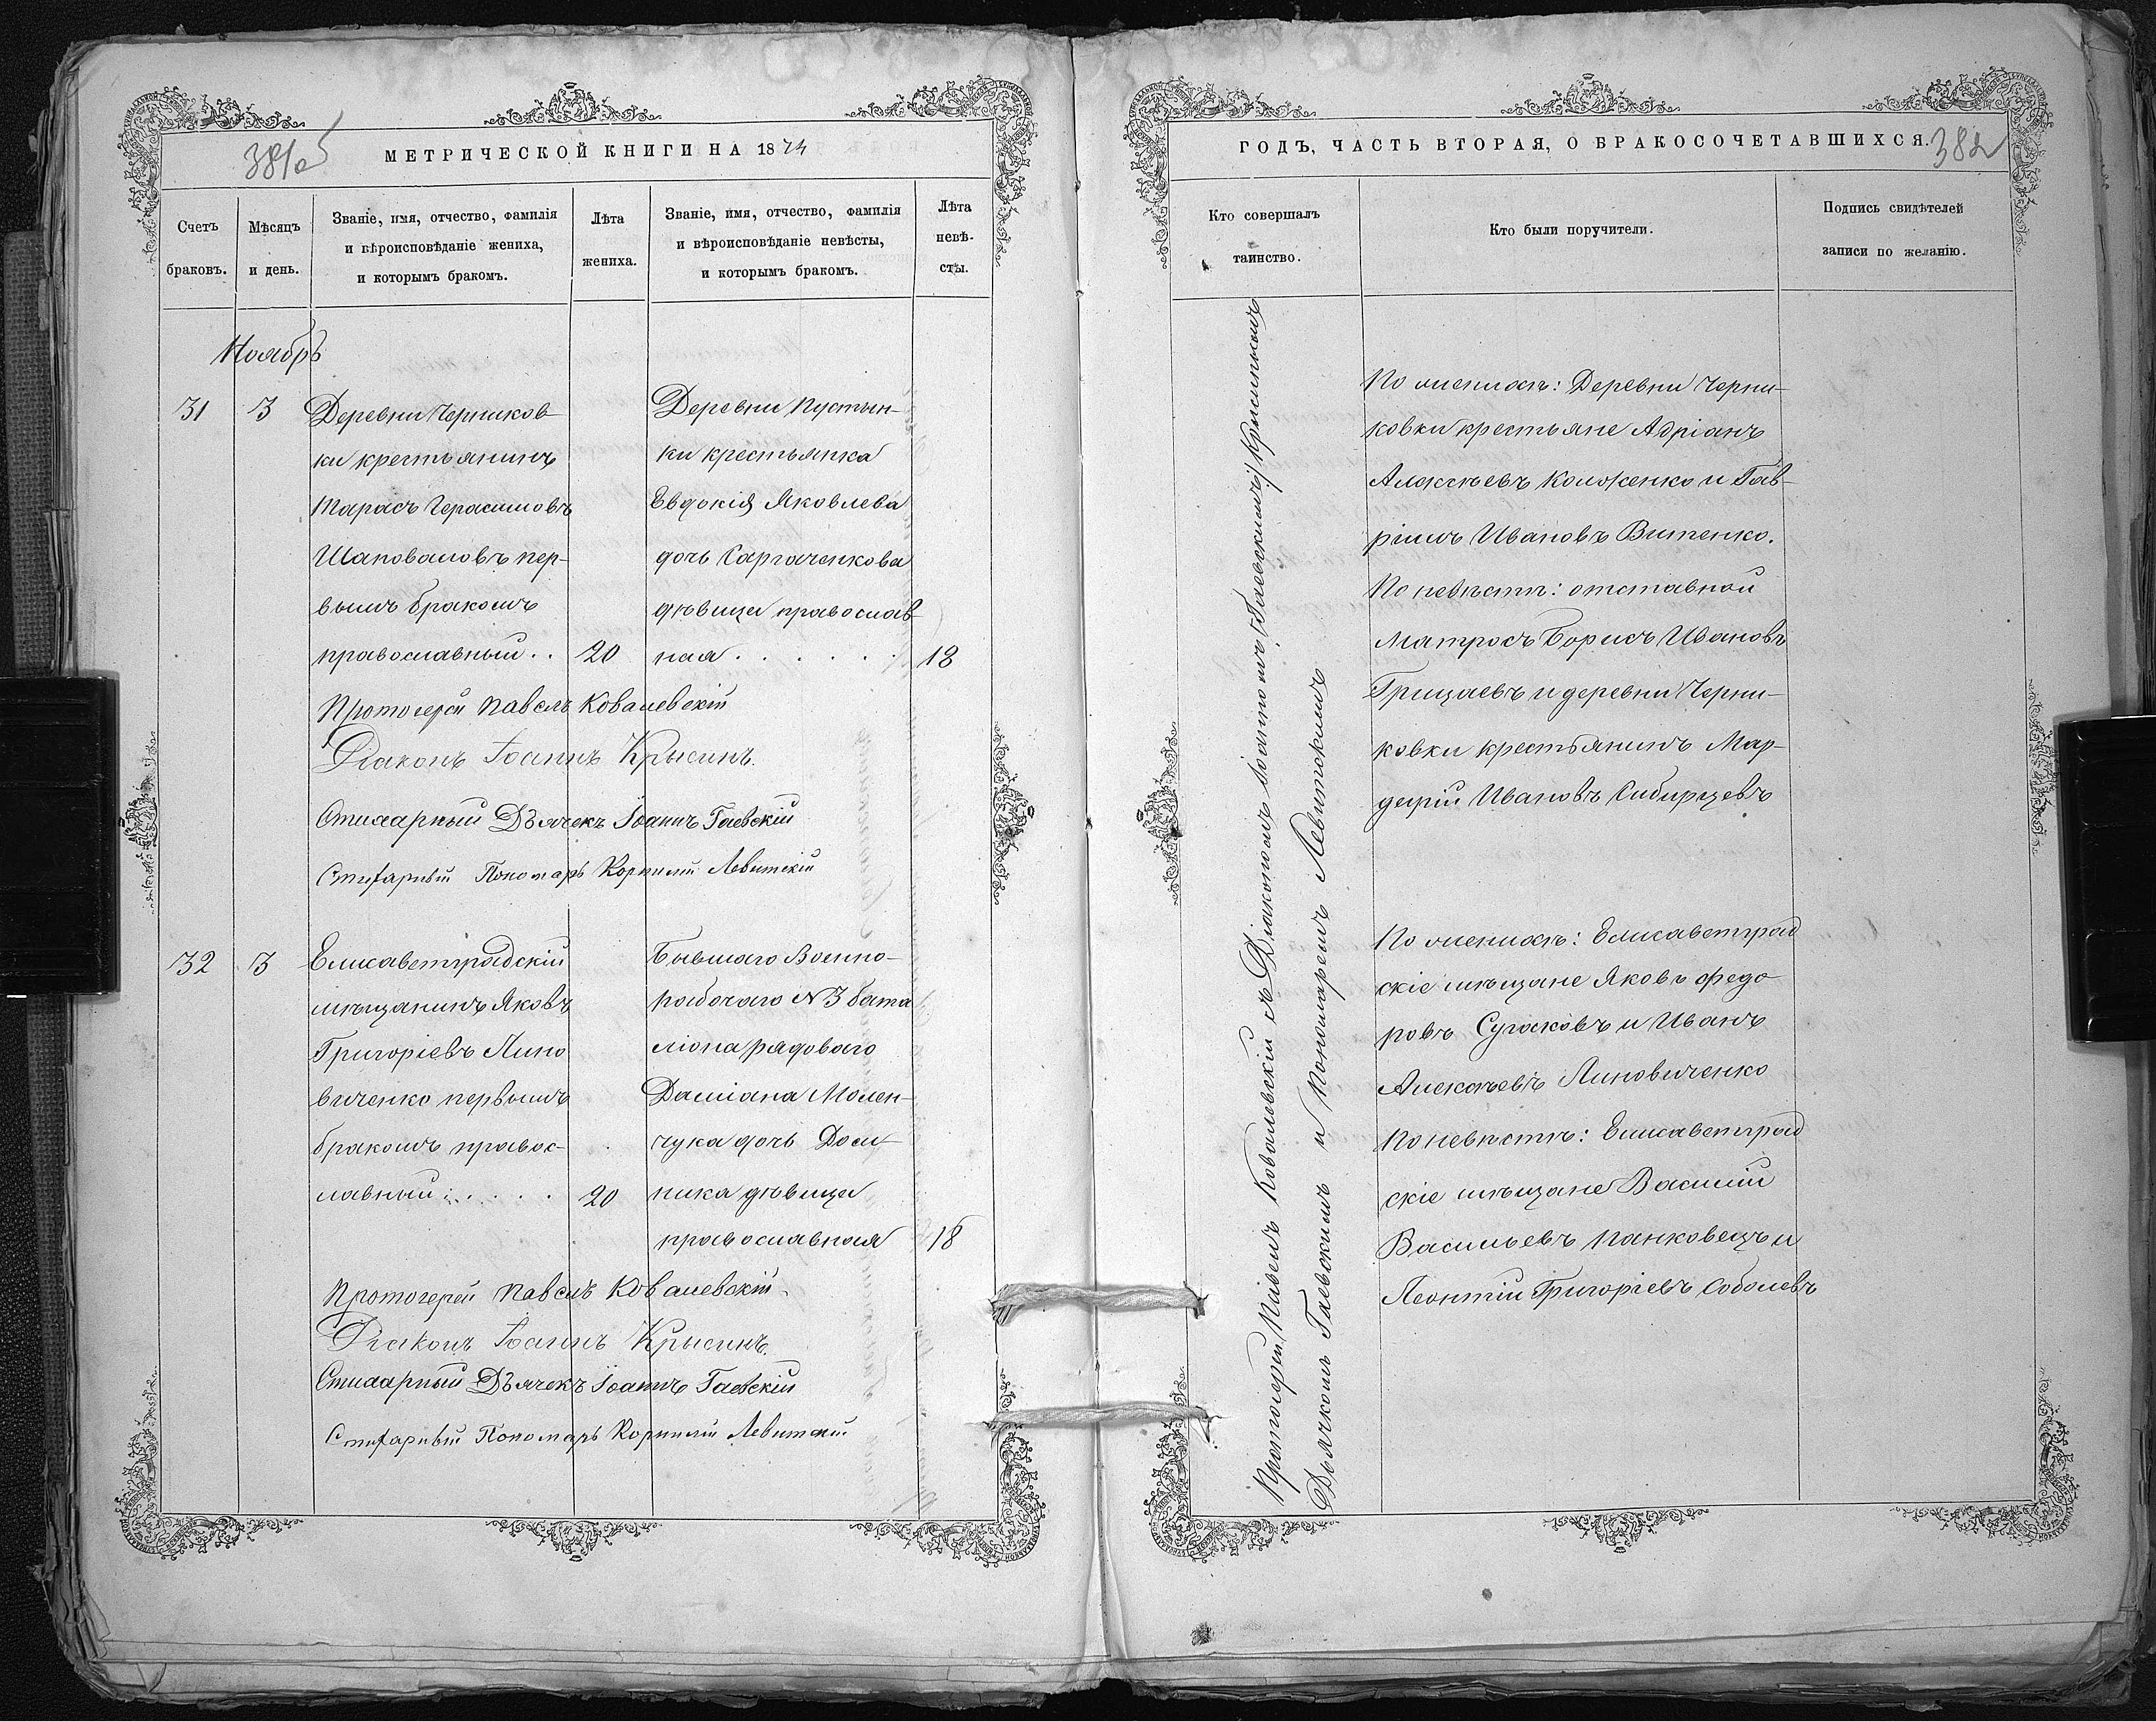 381об
МЕТРИЧЕСКОЙ КНИГИ НА 1874
Счетъ
браковъ.
Мѣсяцъ
и день.
Званіе, имя, отчество, фамилія
и вѣроисповѣданіе жениха,
и которымъ бракомъ.
Лѣта
жениха.
Званіе, имя, отчество, фамилія
и вѣроисповѣданіе невѣсты,
и которымъ бракомъ.
Лѣта
невѣ-
сты.
Ноябрь
31
3
Деревни Черников
ки крестьянинъ
Тарасъ Герасимовъ
Шаповаловъ пер-
вымъ бракомъ
православный . .
20
Деревни Пустын-
ки крестьянка
Евдокія Яковлева
дочь Саргаченкова
дѣвица православ
ная . . . . . .
18
Протоіерей Павелъ Ковалевскій
Діаконъ Іоаннъ Крысинъ.
Стихарный Дьячекъ Іоаннъ Гаевскій
Стихарный Пономарь Корнилій Левитскій
32
3
Елисаветградскій
мѣщанинъ Яковъ
Григоріевъ Лино
виченко первымъ
бракомъ правос-
лавный . . . . .
20
Бывшаго Военно-
рабочаго N 3 бата
ліона рядоваго
Даміана Мол
чука дочь Дом
ника дѣвица
православная
18
Протоіерей Павелъ Ковалевскій.
Діаконъ Іоаннъ Крысинъ.
Стихарный Дьячекъ Іоаннъ Гаевскій
Стихарный Пономарь Корнилій Левитскій.
ГОДЪ, ЧАСТЬ ВТОРАЯ, О БРАКОСОЧЕТАВШИХСЯ.
382
Кто совершалъ
таинство.
Кто были поручители.
Подпись свидѣтелей
записи по желанію.
Протоіерей Павелъ Ковалевскій съ Діакономъ Іоанномъ (Гаевскимъ) Крысинымъ
Дьячкомъ Гаевскимъ и Пономаремъ Левитскимъ
По женихѣ: Деревни Черни-
ковки крестьяне Адріанъ
Алексѣевъ Коложенко и Гав-
ріилъ Ивановъ Витенко.
По невѣстѣ: отставной
Матросъ Борисъ Ивановъ
Грицаевъ и деревни Черни-
ковки крестьянинъ Мар-
дарій Ивановъ Сибирцевъ
По женихѣ: Елисаветград
скіе мѣщане Яковъ Федо
ровъ Сугаковъ и Иванъ
Алексѣевъ Линовиченко
По невѣстѣ: Елисаветград
скіе мѣщане Василій
Васильевъ Панковецъ и
Леонтій Григоріевъ Соболевъ